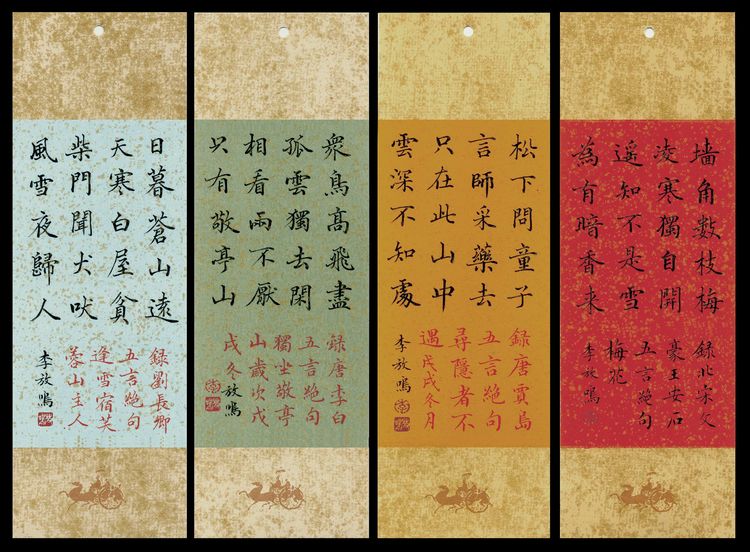 墙角數枝梅
凌寒獨自開
遥知不是雪
為有暗香来
録北宋文
豪王安石
五言絶句
梅花
李放鳴
松下問童子
言師采藥去
只在此山中
雲深不知處
録唐賈島
五言絶句
尋隱者不
遇戊戌冬月
李放鳴
衆鳥高飛盡
孤雲獨去閑
相看兩不厭
只有敬亭山
録唐李白
五言絶句
獨坐敬亭
山歲次戊
戌冬放鳴
日暮蒼山遠
天寒白屋貧
柴門聞犬吠
風雪夜歸人
録劉長卿
五言絶句
逢雪宿芙
蓉山主人
李放鳴